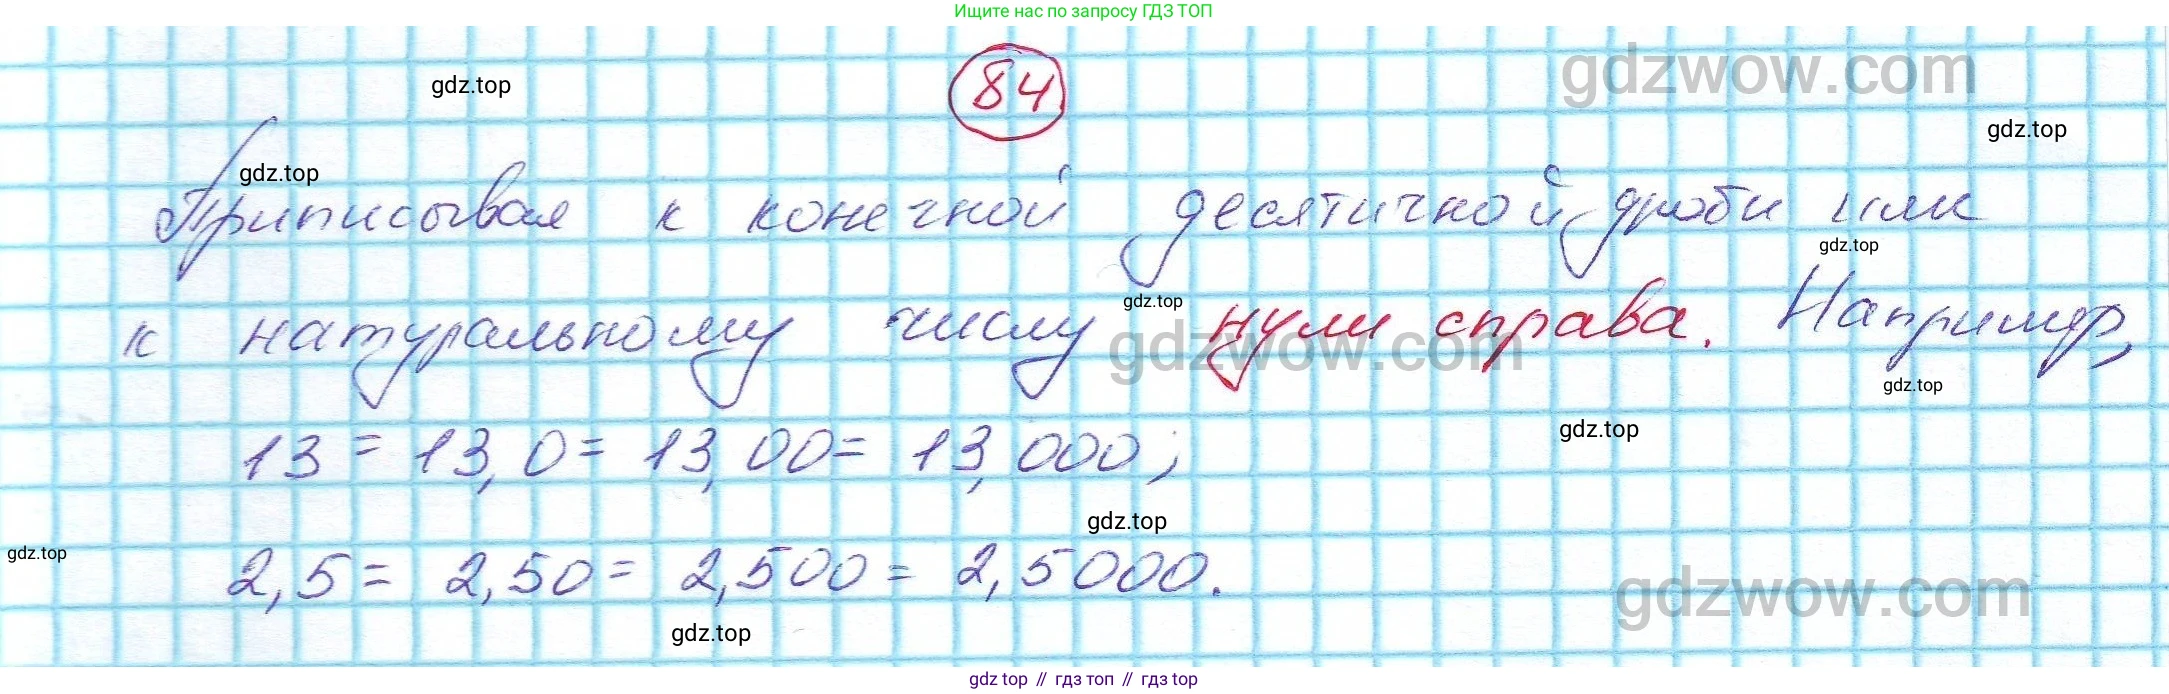 Ищите нас по запросу ГДЗ ТОП
84
gdz.top
gdzwow.com
gdz.top
gdz.top
Приписывая к конечной десятичной дроби или
gdz.top
gdz.top
к натуральному числу нули справа. Например,
gdzwow.com
gdz.top
gdz.top
13 = 13,0 = 13,00 = 13,000;
gdz.top
gdz.top
2,5 = 2,50 = 2,500 = 2,5000.
gdzwow.com
gdz.top
gdz.top // гдз топ // гдз top